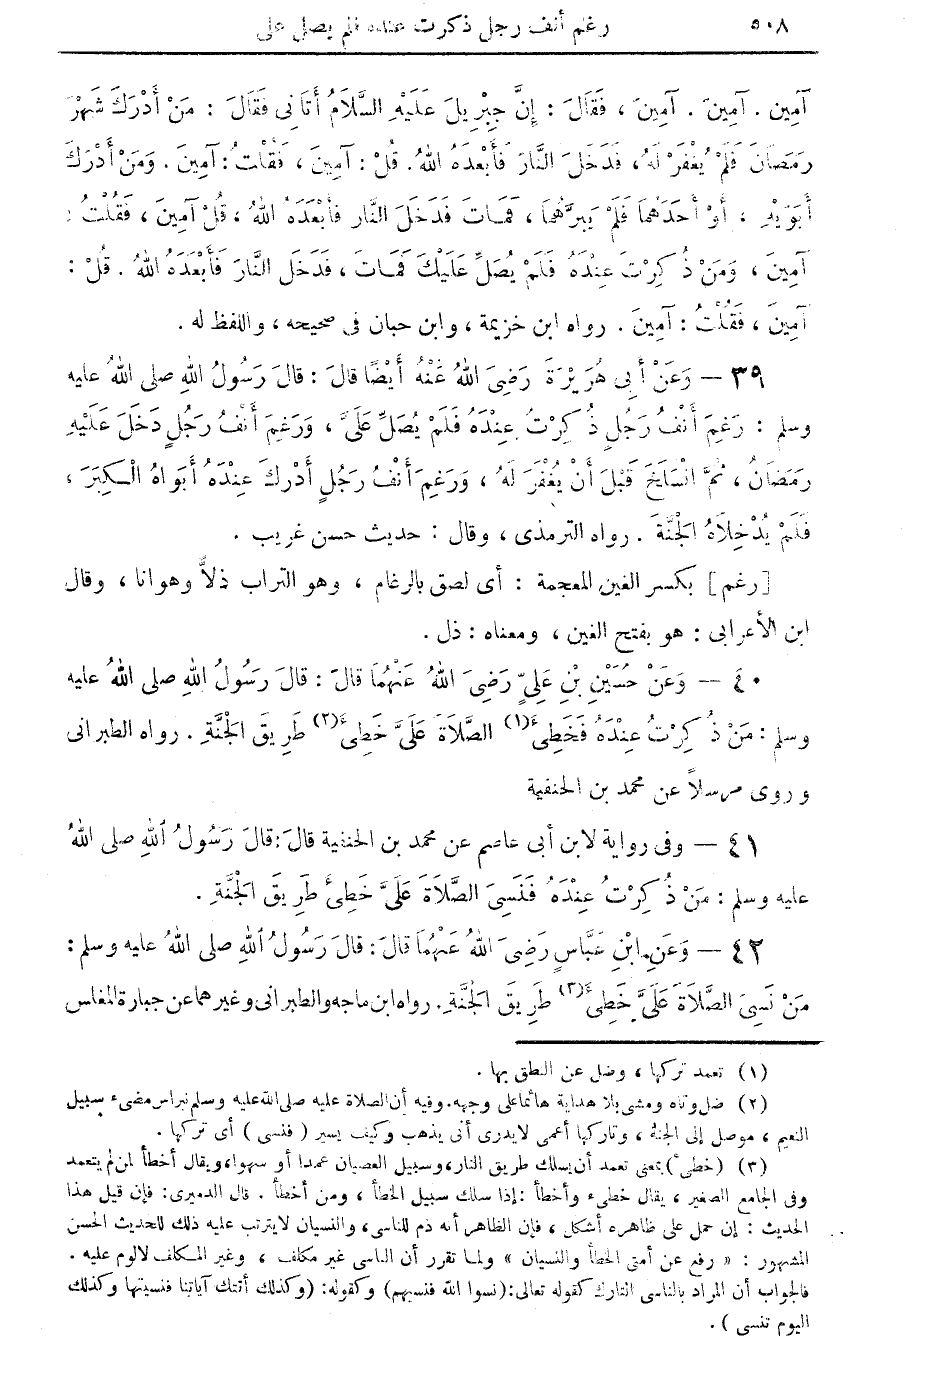 ٥٠٨ رغم أنف رجل ذكرت عنده فلم يصل على
آمين . آمِينَ . آمِينَ ، فَقَالَ : إِنَّ جِبْرِيلَ عَلَيْهِ السَّلاَمُ أَتَانِى فَقَالَ : مَنْ أَدْرَكَ شَهْرَ
رَمَضَانَ فَلَمْ يُغْفَرْ لَهُ، فَدَخَلَ النَّارَ فَأَبْعَدَهُ اللهُ. قُلْ : آمِينَ ، فَقُلْتُ : آمِينَ . وَمَنْ أَدْرَكَ
أَبَوَيْهِ ، أَوْ أَحَدَهُمَا فَلَمْ يَبَرَّهُمَا ، فَمَاتَ فَدَخَلَ النَّارَ فَأَبْعَدَهُ اللهُ ، قُلْ آمِينَ ، فَقُلْتُ :
آمِينَ ، وَمَنْ ذُكِرْتَ عِنْدَهُ فَلَمْ يُصَلِّ عَلَيْكَ فَمَاتَ ، فَدَخَلَ النَّارَ فَأَبْعَدَهُ اللهُ . قُلْ :
آمِينَ ، فَقُلْتُ : آمِينَ . رواه ابن خزيمة ، وابن حبان فى صحيحه ، واللفظ له .
٣٩ — وَعَنْ أَبِى هُرَيْرَةَ رَضِىَ اللهُ عَنْهُ أَيْضًا قالَ : قالَ رَسُولُ اللهِ صلى اللهُ عليه
وسلم : رَغِمَ أَنْفُ رَجُلٍ ذُكِرْتُ عِنْدَهُ فَلَمْ يُصَلِّ عَلَىَّ ، وَرَغِمَ أَنْفُ رَجُلٍ دَخَلَ عَلَيْهِ
رَمَضَانُ ، ثُمَّ انْسَلَخَ قَبْلَ أَنْ يُغْفَرَ لَهُ ، وَرَغِمَ أَنْفُ رَجُلٍ أَدْرَكَ عِنْدَهُ أَبَوَاهُ الْكِبَرَ ،
فَلَمْ يُدْخِلاَهُ الْجَنَّةَ . رواه الترمذى ، وقال : حديث حسن غريب .
[رغم] بكسر الغين المعجمة : أى لصق بالرغام ، وهو التراب ذلاًّ وهوانا ، وقال
ابن الأعرابى : هو بفتح الغين ، ومعناه : ذل .
٤٠ — وَعَنْ حُسَيْنِ بْنِ عَلِىٍّ رَضِىَ اللهُ عَنْهُمَا قالَ : قالَ رَسُولُ اللهِ صلى اللهُ عليه
وسلم : مَنْ ذُكِرْتُ عِنْدَهُ فَخَطِئَ (١) الصَّلاَةَ عَلَىَّ خَطِئَ (٢) طَرِيقَ الْجَنَّةِ . رواه الطبرانى
وروى مرسلاً عن محمد بن الحنفية
٤١ — وفى رواية لابن أبى عاصم عن محمد بن الحنفية قالَ : قالَ رَسُولُ اللهِ صلى اللهُ
عليه وسلم : مَنْ ذُكِرْتُ عِنْدَهُ فَنَسِىَ الصَّلاَةَ عَلَىَّ خَطِئَ طَرِيقَ الْجَنَّةِ .
٤٢ — وَعَنِ ابْنِ عَبَّاسٍ رَضِىَ اللهُ عَنْهُمَا قالَ : قالَ رَسُولُ اللهِ صلى اللهُ عليه وسلم :
مَنْ نَسِىَ الصَّلاَةَ عَلَىَّ خَطِئَ (٣) طَرِيقَ الْجَنَّةِ . رواه ابن ماجه والطبرانى وغيرهما عن جبارة المغلس
(١) تعمد تركها ، وضل عن النطق بها .
(٢) ضل وتاه ومشى بلا هداية هائما على وجهه. وفيه أن الصلاة عليه صلى الله عليه وسلم نبراس مضىء سبيل
النعيم ، موصل إلى الجنة ، وتاركها أعمى لا يدرى أنى يذهب وكيف يسير ( فنسى ) أى تركها .
(٣) (خطئ) بمعنى تعمد أن يسلك طريق النار، وسبيل العصيان عمدا أو سهوا، ويقال أخطأ لمن لم يتعمد
وفى الجامع الصغير ، يقال خطىء وأخطأ : إذا سلك سبيل الخطأ ، ومن أخطأ . قال الدميرى: فإن قيل هذا
الحديث : إن حمل على ظاهره أشكل ، فإن الظاهر أنه ذم للناسى، والنسيان لا يترتب عليه ذلك للحديث الحسن
المشهور : « رفع عن أمتى الخطأ والنسيان » ولما تقرر أن الناسى غير مكلف ، وغير المكلف لا لوم عليه .
فالجواب أن المراد بالناسى التارك كقوله تعالى: (نسوا الله فنسيهم) وكقوله: (وكذلك أتتك آياتنا فنسيتها وكذلك
اليوم تنسى ) .